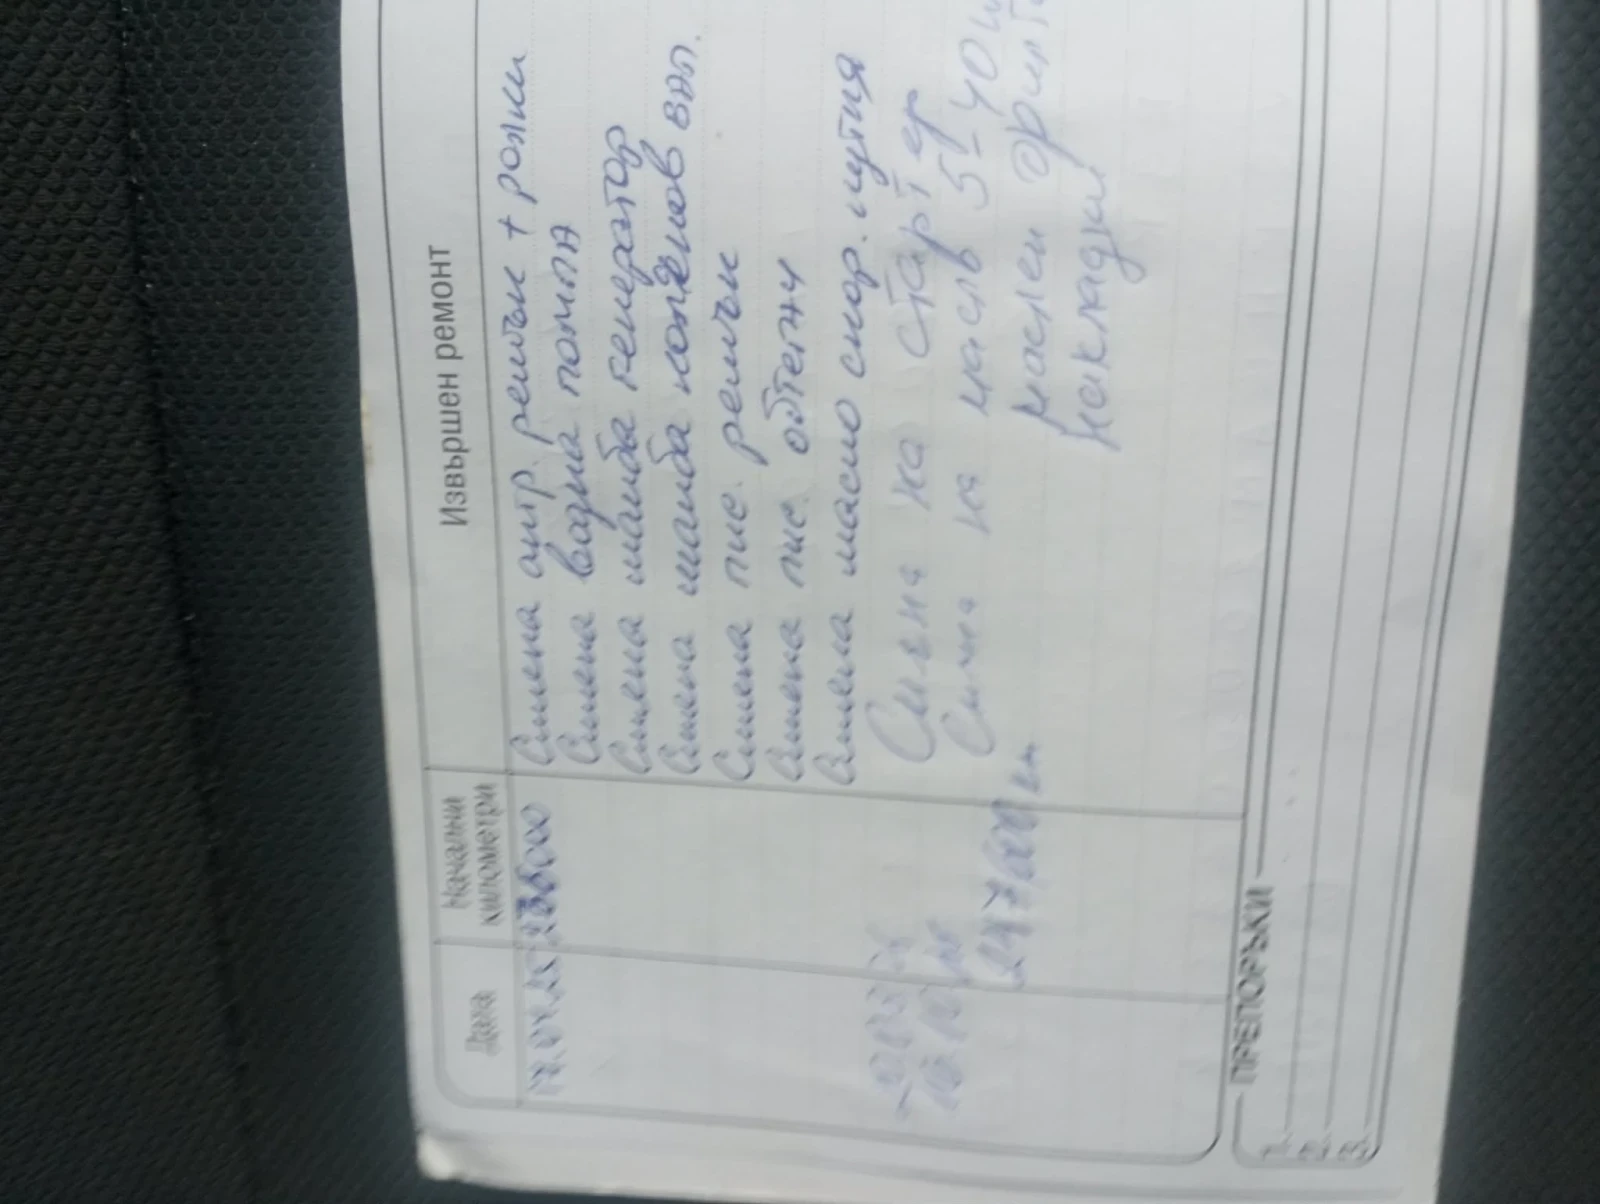 Дата Начални километри Извършен ремонт
Смена анг. ремък + ролки
Смена водна помпа
Смена шайба генератор
Смена шайба колянов вал.
Смена пис. ремък
Смена пис. обтегач
Смена масло скор. кутия
Смяна на стартер
Смяна на масло 5-40
247000 км маслен филт
накладки
ПРЕПОРЪКИ
1.
2.
3.